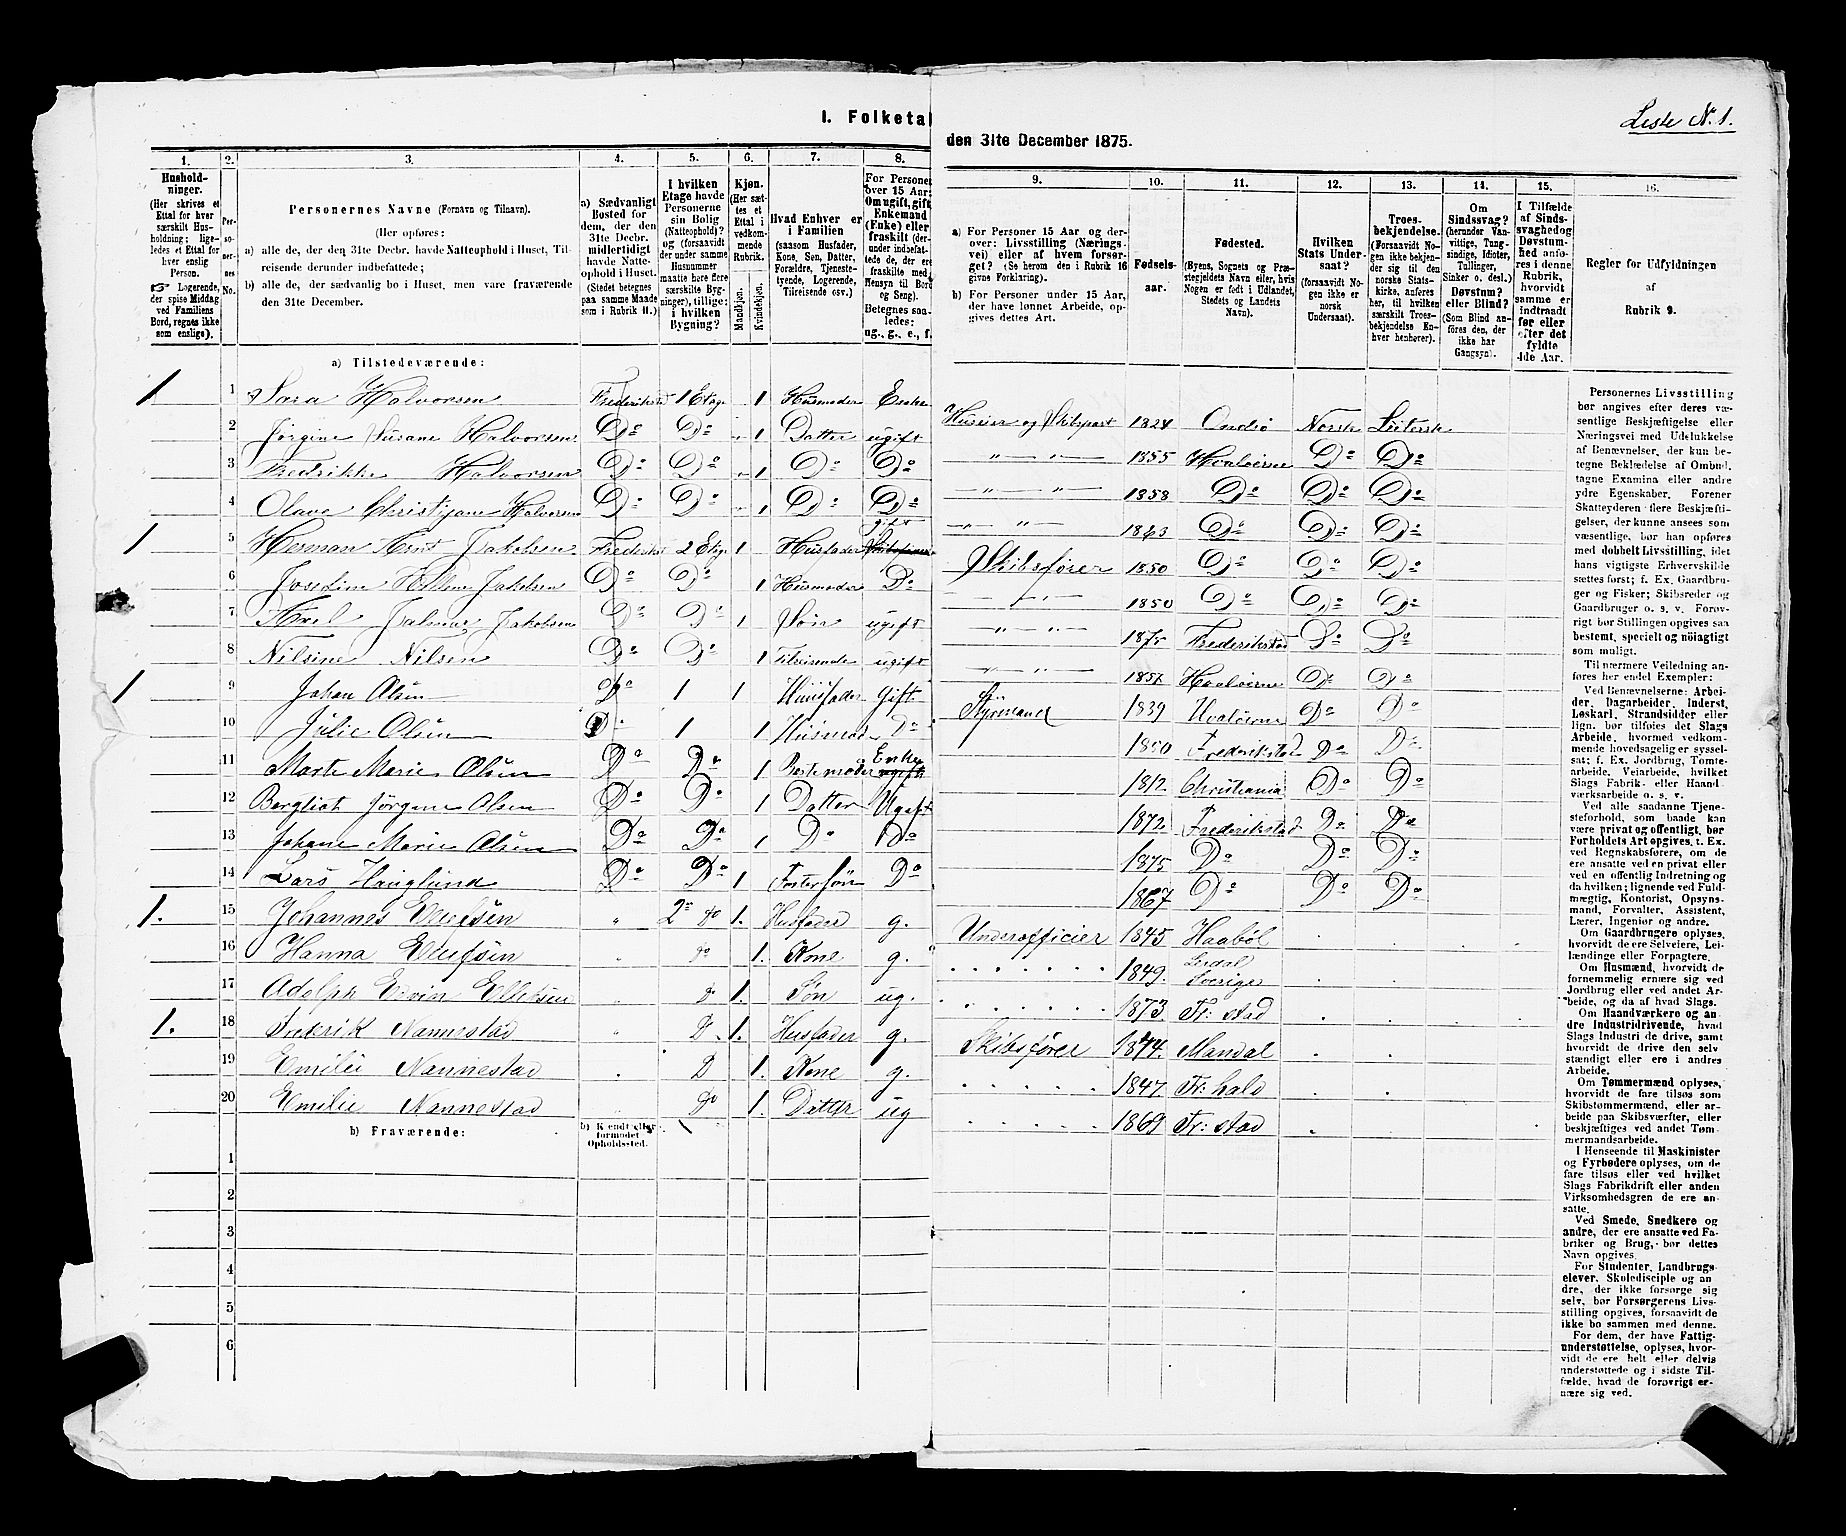 I. Folketal
den 31te December 1875.
Liste N. 1.
1.
Hushold-
ninger.
(Her skrives et
Ettal for hver
særskilt Hus-
holdning; lige-
ledes et Ettal for
hver enslig
Person.
Logerende,
der spise Middag
ved Familiens
Bord, regnes ikke
som enslige).
2.
Per-
so-
ner-
nes
No.
3.
Personernes Navne (Fornavn og Tilnavn).
(Her opføres:
a) alle de, der den 31te Decbr. havde Natteophold i Huset, Til-
reisende derunder indbefattede;
b) alle de, der sædvanlig bo i Huset, men vare fraværende
den 31te December.
4.
a) Sædvanligt
Bosted for
dem, der den
31te Decbr.
midlertidigt
havde Natte-
ophold i Huset.
(Stedet betegnes
paa samme Maade
som i Rubrik 11.)
5.
I hvilken
Etage havde
Personerne
sin Bolig
(Natteophold)?
og (forsaavidt
der under samme
Husnummer
maatte høre flere
særskilte Byg-
ninger), tillige:
i hvilken
Bygning?
6.
Kjøn.
(Her sæt-
tes et
Ettal i
vedkom-
mende
Rubrik.
Mandkjøn.
Kvindekjøn.
7.
Hvad Enhver er
i Familien
(saasom Husfader,
Kone, Søn, Datter,
Forældre, Tjeneste-
tyende, Logerende,
Tilreisende osv.)
8.
For Personer
over 15 Aar:
Om ugift, gift,
Enkemand
(Enke) eller
fraskilt (der-
under indbefat-
tede de, der ere
fraskilte med
Hensyn til Bord
og Seng).
Betegnes saa-
ledes:
ug., g., e., f.
9.
a) For Personer 15 Aar og der-
over: Livsstilling (Nærings-
vei) eller af hvem forsør-
get? (Se herom den i Rubrik 16
givne Forklaring).
b) For Personer under 15 Aar,
der have lønnet Arbeide, op-
gives dettes Art.
10.
Fødsels-
aar.
11.
Fødested.
(Byens, Sognets og Præ-
stegjeldets Navn eller, hvis
Nogen er født i Udlandet,
Stedets og Landets
Navn).
12.
Hvilken
Stats Under-
saat?
(forsaavidt No-
gen ikke er
norsk
Undersaat).
13.
Troes-
bekjendelse.
(Forsaavidt No-
gen ikke bekjen-
der sig til den
norske Stats-
kirke, anføres
her, til hvilken
særskilt Troes-
bekjendelse En-
hver henhører).
14.
Om
Sindssvag?
(herunder Van-
vittige, Tung-
sindige, Idioter,
Tullinger,
Sinker o. desl.)
Døvstum?
eller Blind?
(Som Blind an-
føres den, der
ikke har
Gangsyn).
15.
I Tilfælde
af Sinds-
svaghed og
Døvstum-
hed anfø-
res i denne
Rubrik,
hvorvidt
samme er
indtraadt
før eller
efter det
fyldte
4de Aar.
16.
Regler for Udfyldningen
af
Rubrik 9.
a) Tilstedeværende:
1 1 Sara Halvorsen Frederikstad 1 Etage 1 Husmoder Enke Huseier og Skibspart 1824 Onsö Norsk Luthersk
2 Jörgine Susane Halvorsen Do Do 1 Datter ugift 1855 Hvalöerne Do Do
3 Fredrikke Halvorsen Do Do 1 Do Do 1858 Do Do Do
4 Olava Christjane Halvorsen Do Do 1 Do Do 1863 Do Do Do
1 5 Herman Jakobsen Frederikst 2 Etage 1 Husfader gift Skibsfører 1850 Do Do Do
6 Josefine Jakobsen Do Do 1 Husmoder Do 1850 Do Do Do
7 Axel Jakobsen Do Do 1 Søn ugift 1875 Frederikstad Do Do
8 Nilsine Nilsen Do Do 1 Tilreisende ugift Hvalöerne Do Do
1 9 Johan Olsen Do 1 1 Husfader Gift Styrmand 1839 Hvalöerne Do Do
10 Julie Olsen Do 1 1 Husmod Do 1850 Frederikstad Do Do
11 Marte Marie Olsen Do Do 1 Bestemoder Enke 1812 Christiania Do Do
12 Bergliot Jörgine Olsen Do Do 1 Datter Ugift 1872 Frederikstad Do Do
13 Johane Marie Olsen Do Do 1 Do Do 1875 Do Do Do
14 Lars Hauglund Do Do 1 Fostersön Do 1867 Do Do Do
1. 15 Johannes 2 do 1. Husfader g. Underofficier 1845 Haabøl
16 Hanna do 1. Kone g. 1849. Sverige
17 Adolph do 1. Søn ug. 1873. Fr: stad
1. 18 Fredrik Nannestad D 1. Husfader g. Skibsfører 1844. Mandal
19 Emilie Nannestad D 1. Kone g. 1847. Fr: hald
20 Emilie Nannestad do 1. Datter ug 1869 Fr: stad
b) Fraværende:
b) Kjendt eller
formodet
Opholdssted.
1
2
3
4
5
6
Personernes Livsstilling
bør angives efter deres væ-
sentlige Beskjæftigelse eller
Næringsvei med Udelukkelse
af Benævnelser, der kun be-
tegne Beklædelse af Ombud,
tagne Examina eller andre
ydre Egenskaber. Forener
Skatteyderen flere Beskjæfti-
gelser, der kunne ansees som
væsentlige, bør han opføres
med dobbelt Livsstilling, idet
hans vigtigste Erhvervskilde
sættes først; f. Ex. Gaardbru-
ger og Fisker; Skibsreder og
Gaardbruger o. s. v. Forøv-
rigt bør Stillingen opgives saa
bestemt, specielt og nöiagtigt
som muligt.
Til nærmere Veiledning an-
føres her endel Exempler:
Ved Benævnelserne: Arbei-
der, Dagarbeider, Inderst,
Løskarl, Strandsidder eller
lign. bør tilføies det Slags
Arbeide, hvormed vedkom-
mende hovedsagelig er syssel-
sat; f. Ex. Jordbrug, Tomte-
arbeide, Veiarbeide, hvilket
Slags Fabrik- eller Haand-
værksarbeide o. s. v.
Ved alle saadanne Tjene-
steforhold, som baade kan
være privat og offentligt, bør
Forholdets Art opgives, t. Ex.
ved Regnskabsførere, om de
ere ansatte ved en privat eller
ved en offentlig Indretning og
da hvilken; lignende ved Fuld-
mægtig, Kontorist, Opsyns-
mand, Forvalter, Assistent,
Lærer, Ingeniør og andre.
Om Gaardbrugere oplyses,
hvorvidt de ere Selveiere, Lei-
lændinge eller Forpagtere.
Om Husmænd, hvorvidt de
fornemmelig ernære sig ved
Jordbrug eller ved andet Ar-
beide, og da af hvad Slags.
Om Haandværkere og an-
dre Industridrivende, hvad
Slags Industri de drive, samt
hvorvidt de drive den selv
stændigt eller ere i andres
Arbeide.
Om Tømmermænd oplyses,
hvorvidt de fare tilsøs som
Skibstømmermænd, eller ar-
beide paa Skibsværfter, eller
beskjæftiges ved andet Tøm-
mermandsarbeide.
I Henseende til Maskinister
og Fyrbødere oplyses, om de
fare tilsøs eller ved hvilket
Slags Fabrikdrift eller anden
Virksomhedsgren de ere an-
satte.
Ved Smede, Snedkere og
andre, der ere ansatte ved Fa-
briker og Brug, bør dettes
Navn opgives.
For Studenter, Landbrugs-
elever, Skoledisciple og an
dre, der ikke forsørge sig
selv, bør Forsørgerens Livs-
stilling opgives, forsaavidt de
ikke bo sammen med denne.
For dem, der have Fattig-
understøttelse, oplyses, hvor-
vidt de ere helt eller delvis
understøttede og i sidste Til-
fælde, hvad de forøvrigt er-
nære sig ved.